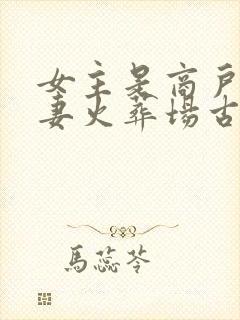 女主是商戶
妻火葬場古
馬蕊苓